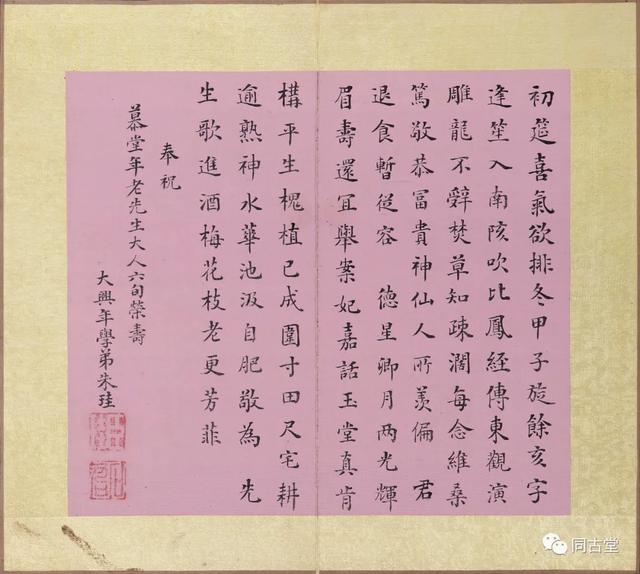 初筵喜氣欲排冬甲子旋餘亥字
逢笙入南陔吹比鳳經傳東觀演
雕龍不辤焚草知疎濶每念維桑
篤敬恭冨貴神仙人所羡偏 君
退食暫從容 德星卿月两光輝
眉壽還宜舉案妃嘉話玉堂真肯
構平生槐植已成圍寸田尺宅耕
逾熟神水華池汲自肥敬為 先
生歌進酒梅花枝老更芳菲
奉祝
慕堂年老先生大人六旬榮壽
大興年學弟朱珪
同古堂